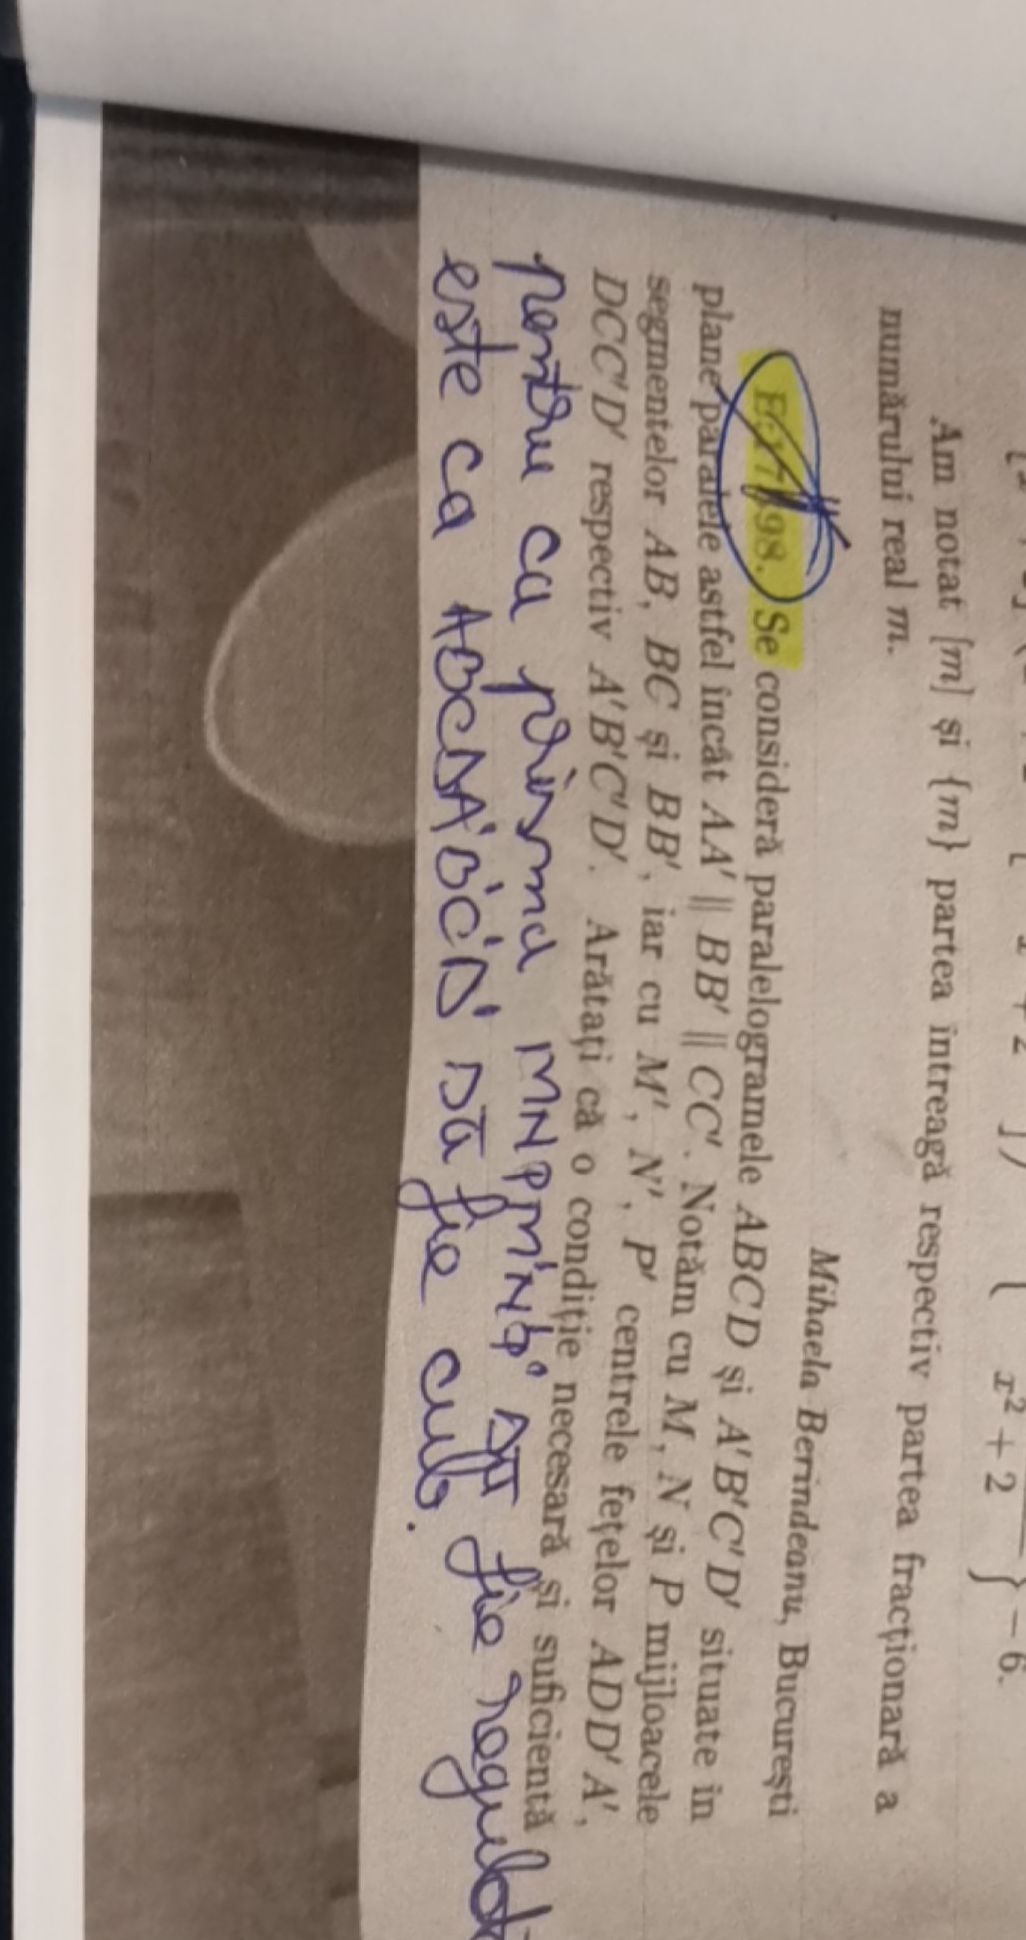 x² + 2
} − 6.
Am notat [m] și {m} partea întreagă respectiv partea fracționară a
numărului real m.
Mihaela Berindeanu, București
98. Se consideră paralelogramele ABCD și A'B'C'D' situate în
plane paralele astfel încât AA' ∥ BB' ∥ CC'. Notăm cu M, N și P mijloacele
segmentelor AB, BC și BB', iar cu M', N', P' centrele fețelor ADD'A',
DCC'D' respectiv A'B'C'D'. Arătați că o condiție necesară și suficientă
pentru ca prisma MNPM'N'P' să fie regulată
este ca ABCDA'B'C'D' să fie cub.